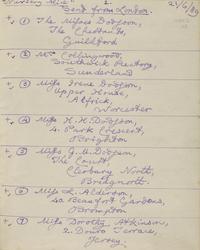 "Nursery Alice" 1. 21/6/89
Sent from London.
+, ① The Misses Dodgson,
The Chestnuts,
Guildford
+, ② Mrs Collingwood,
Southwick Rectory,
Sunderland
+, ③ Miss Irene Dodgson,
Upper House,
Alfrick,
Worcester
+, ④ Miss H. H. Dodgson,
4. Park Crescent,
Brighton
+, ⑤ Miss G. M. Dodgson,
The Court,
Cleobury North,
Bridgnorth.
+, ⑥ Miss L. Alderson,
40 Beaufort Gardens,
Brompton
+, ⑦ Miss Dorothy Atkinson,
2. Douro Terrace,
Jersey.